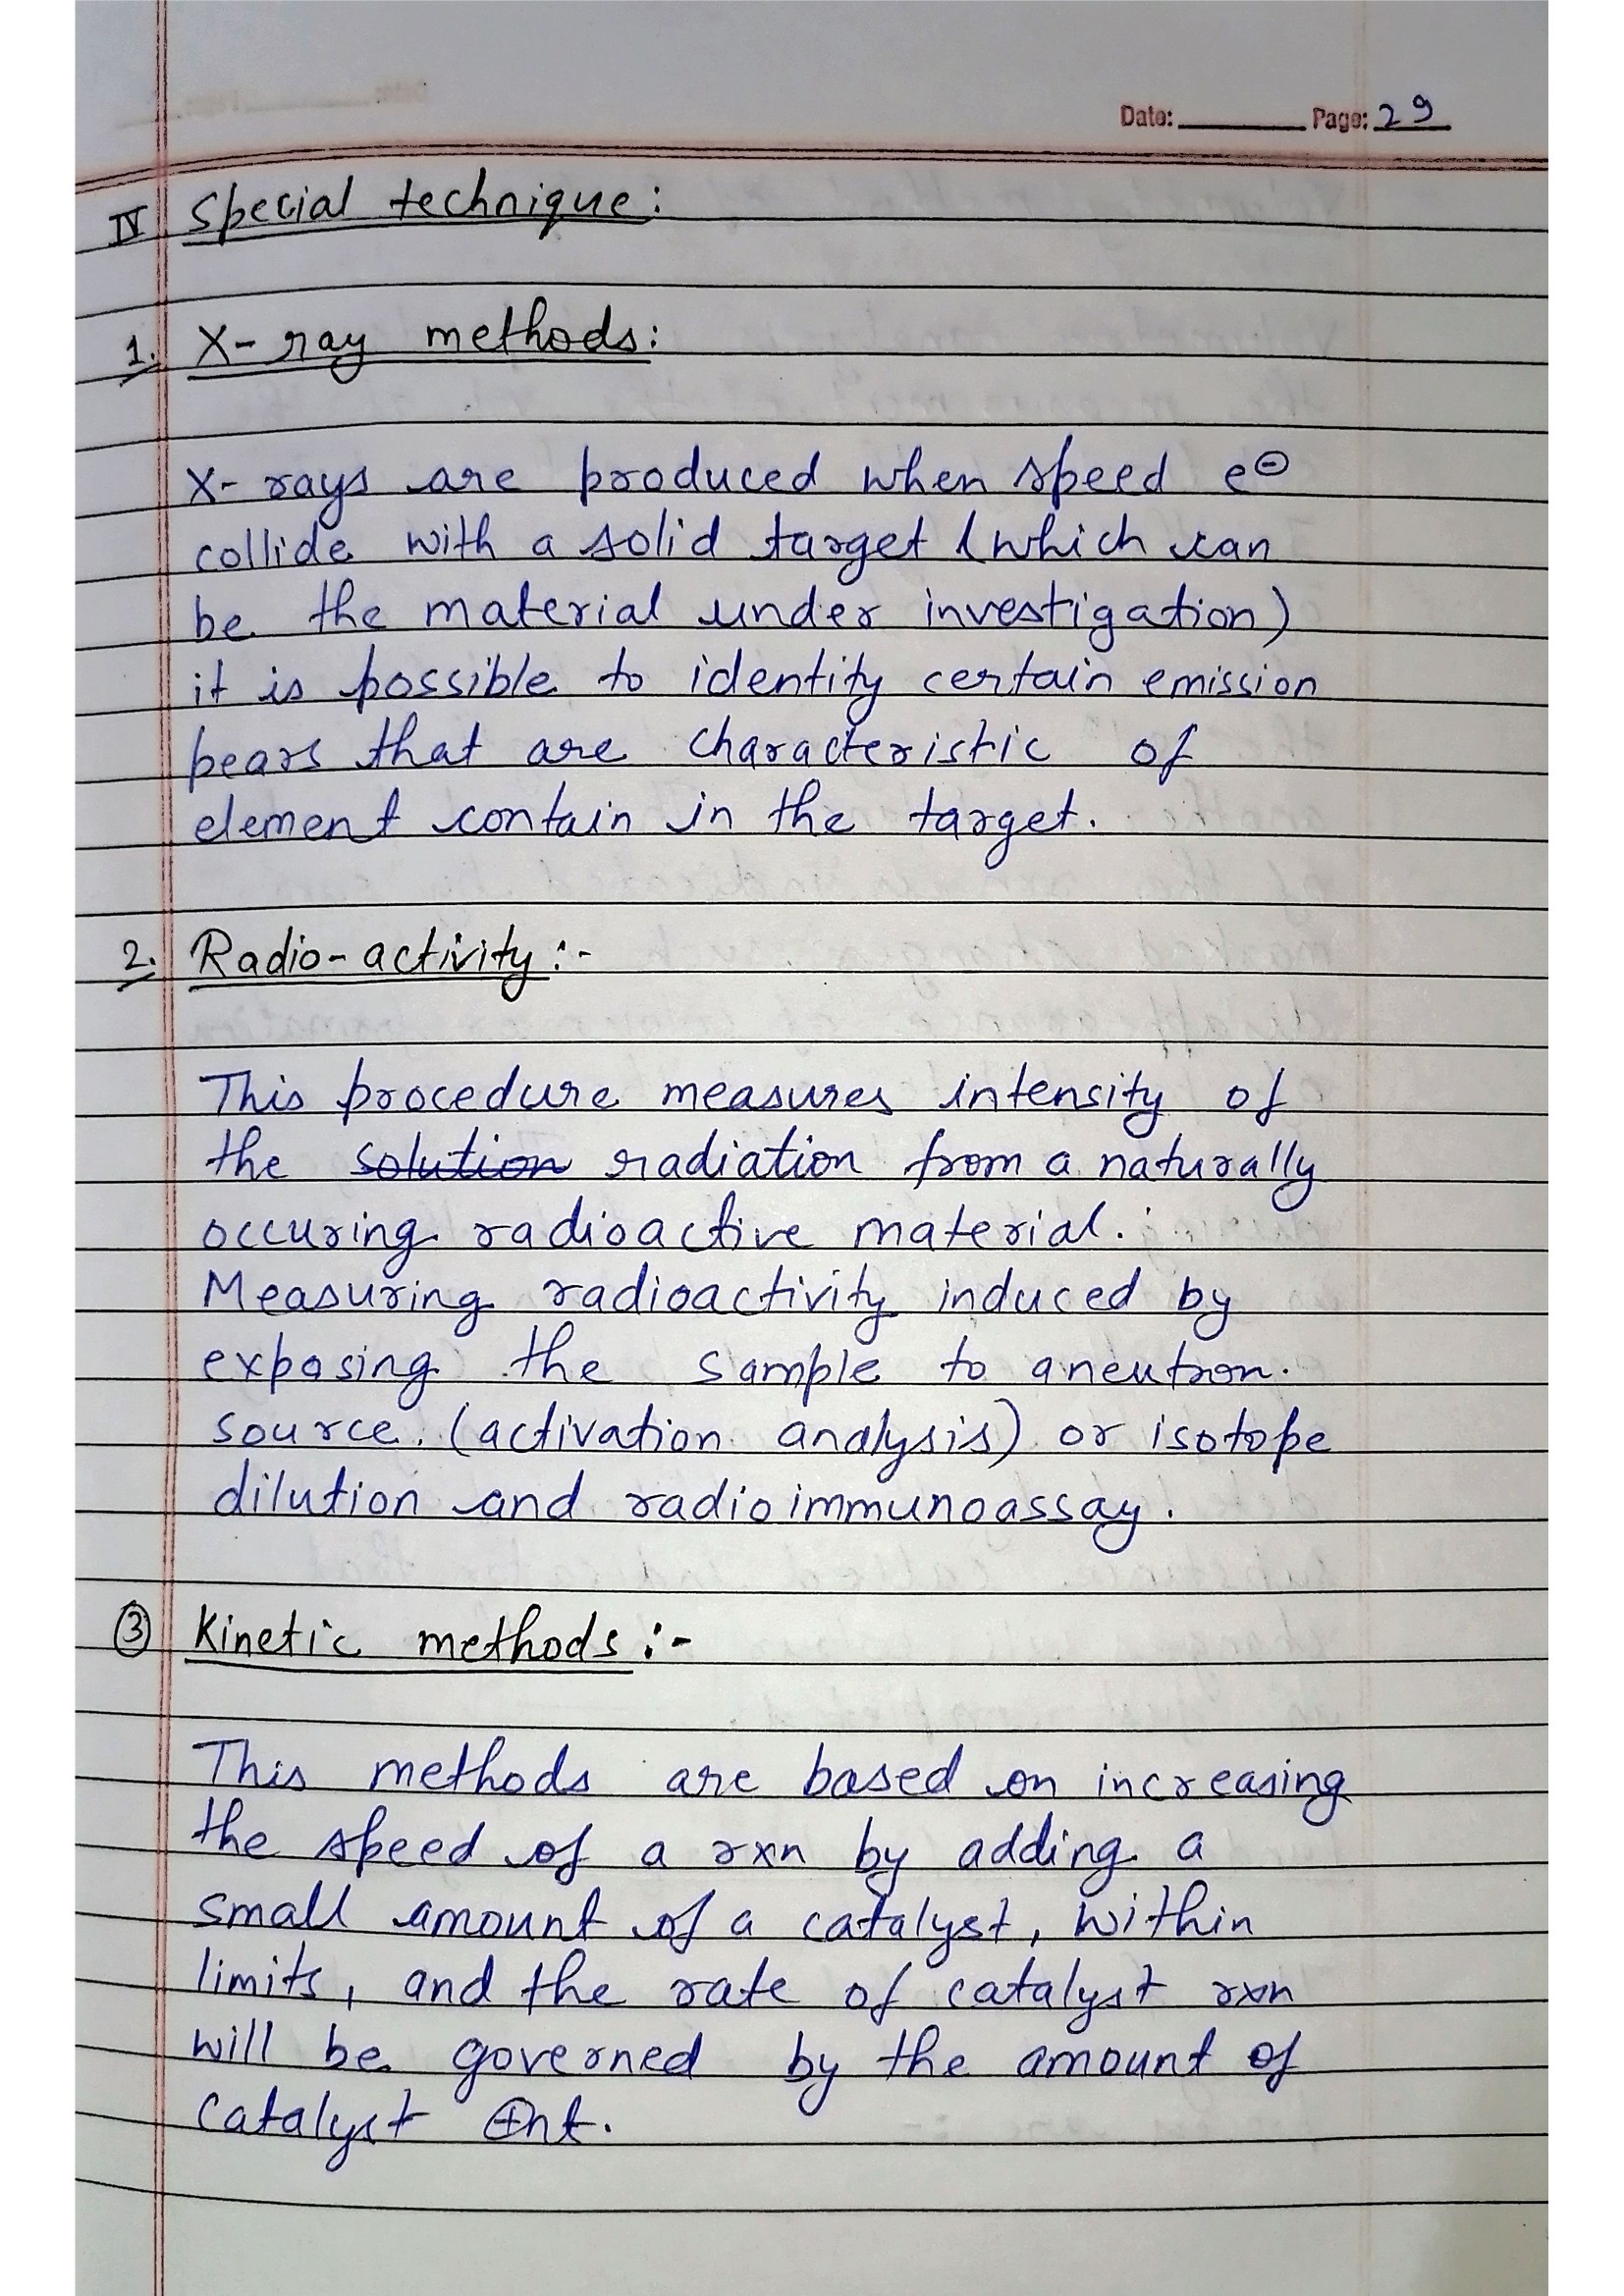 Date: Page: 29
IV Special technique:
1. X-ray methods:
X-rays are produced when speed e⊖
collide with a solid target (which can
be the material under investigation)
it is possible to identity certain emission
pears that are characteristic of
element contain in the target.
2. Radio-activity :-
This procedure measures intensity of
the solution radiation from a naturally
occuring radioactive material.
Measuring radioactivity induced by
exposing the sample to a neutron.
source. (activation analysis) or isotope
dilution and radioimmunoassay.
③ Kinetic methods :-
This methods are based on increasing
the speed of a rxn by adding a
small amount of a catalyst, within
limits, and the rate of catalyst rxn
will be governed by the amount of
catalyst ⊕nt.